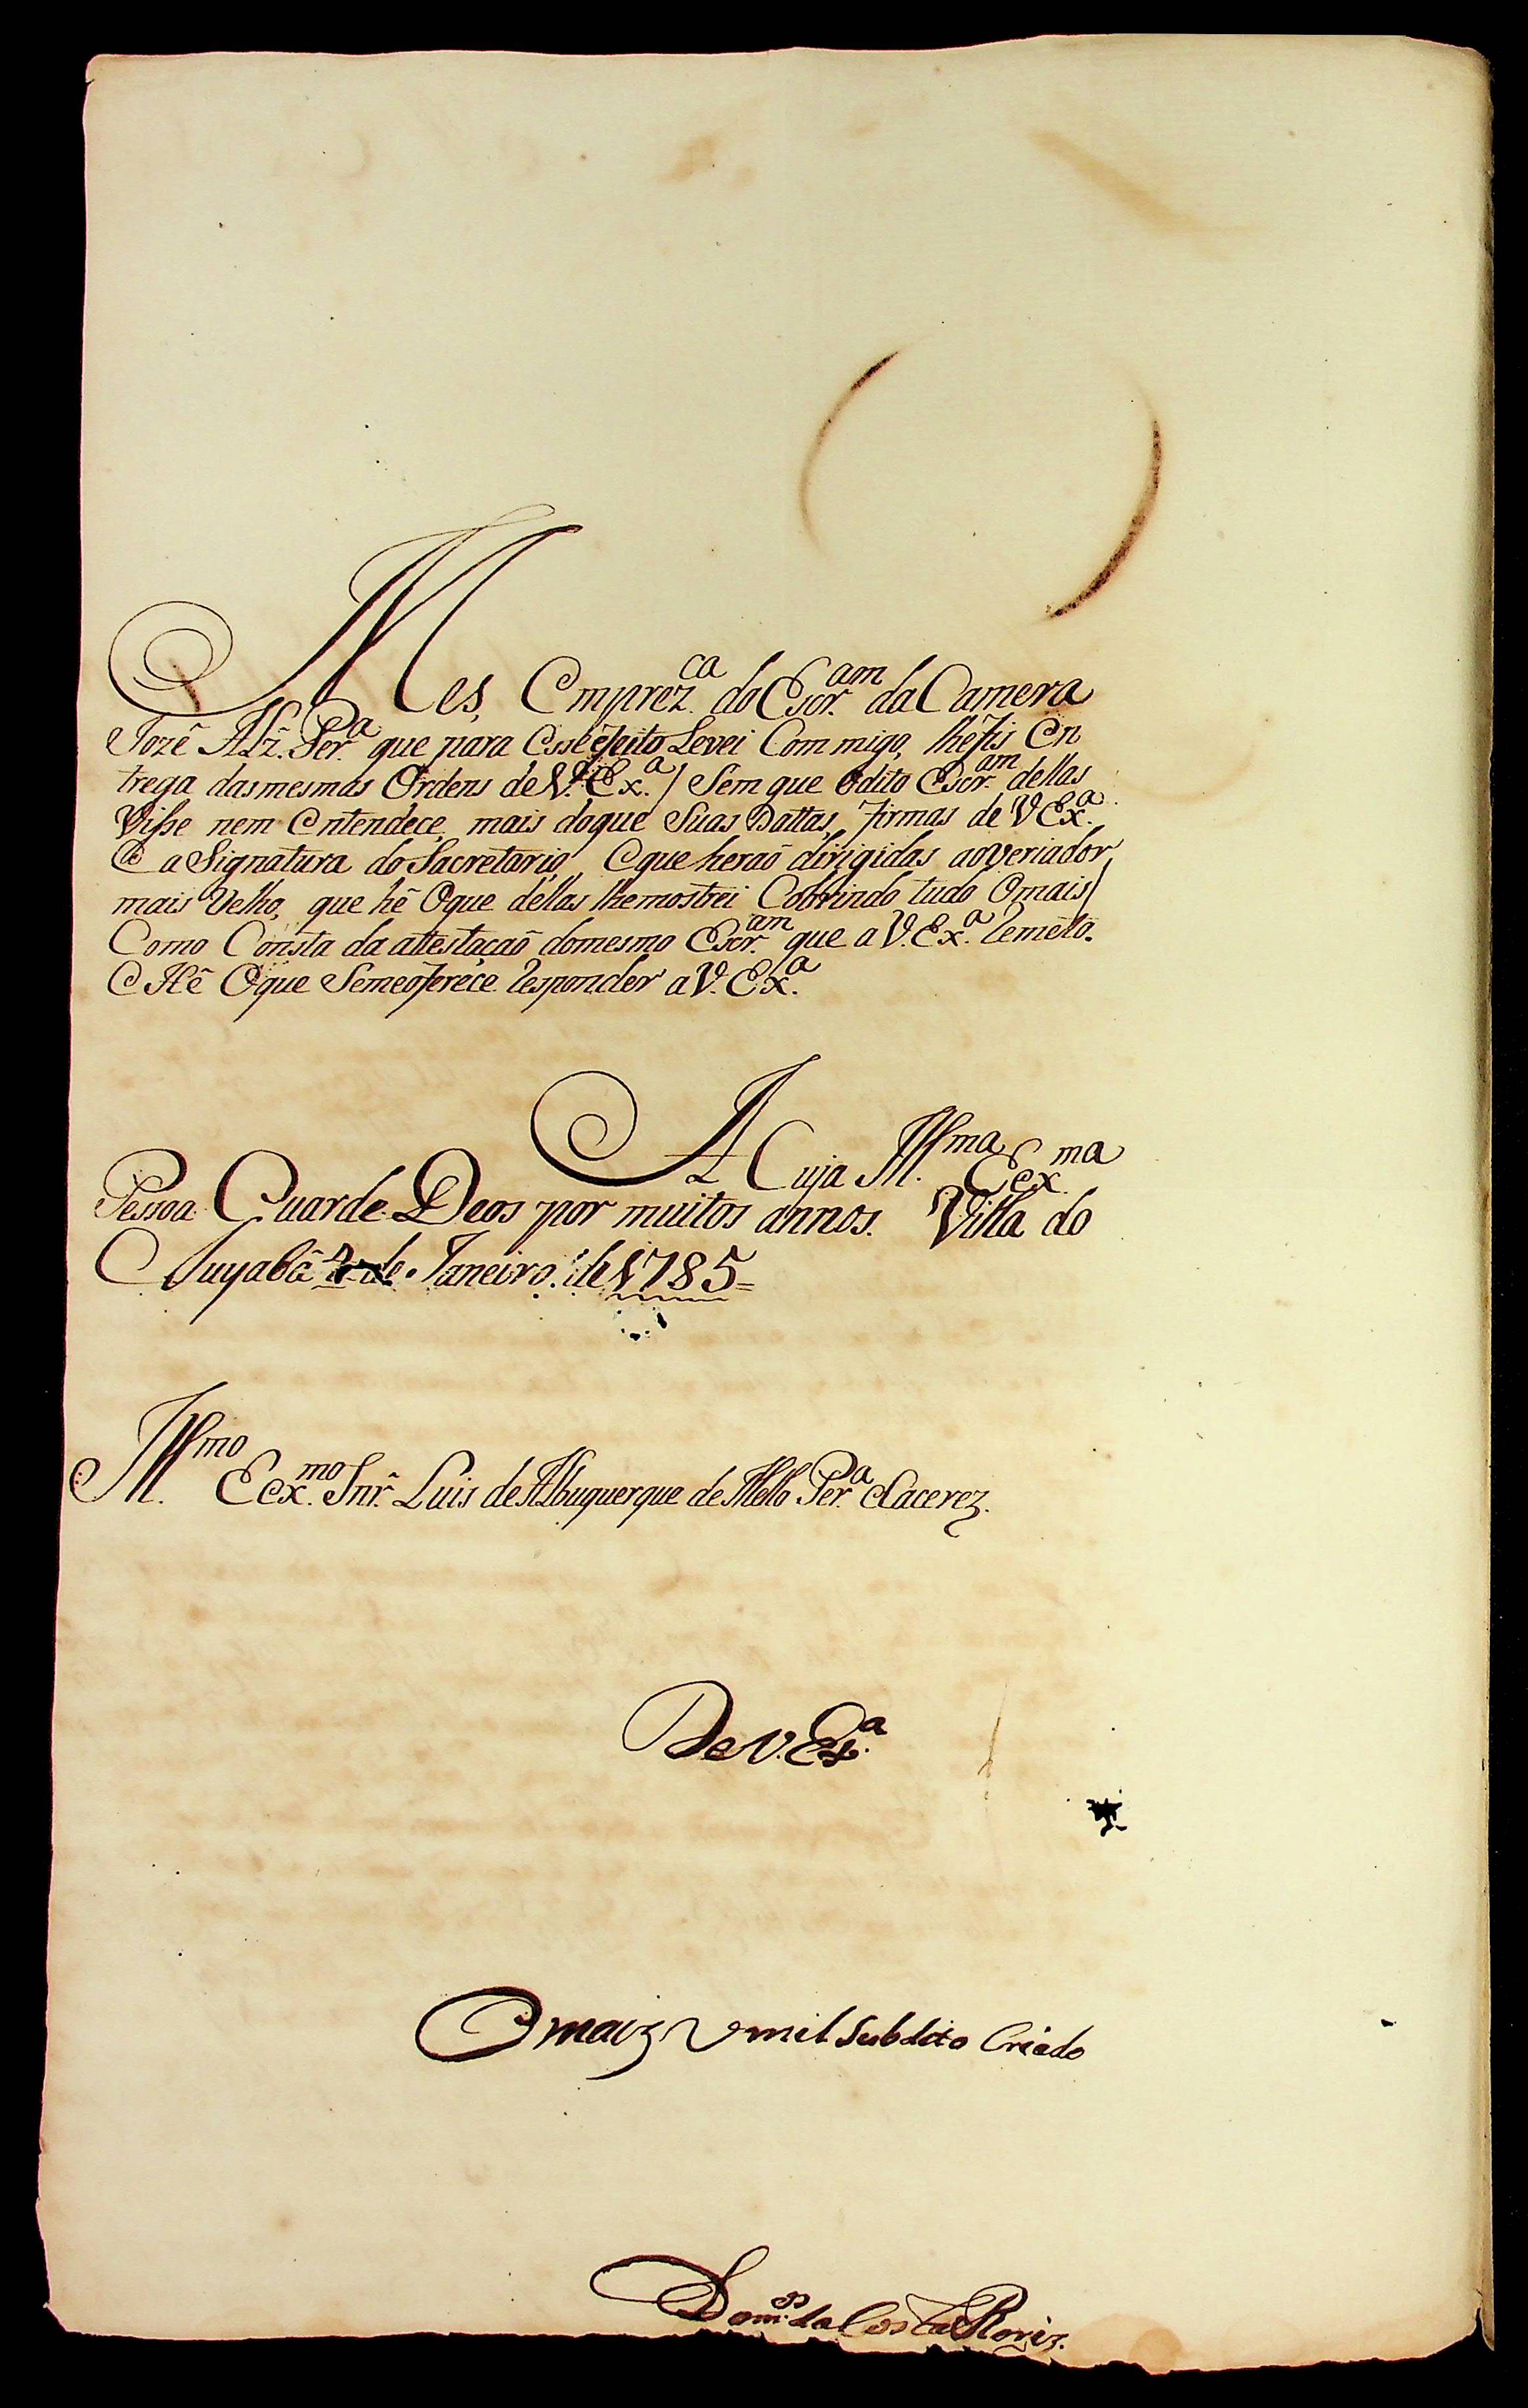 Mes, Emprez.ca do Escr.am da Camera
Jozê Alz. Per.a que para esse efeito Levei Com migo, lhefis En
trega dasmesmas Ordens de V. Ex.a / Sem que odito Escr.am dellas
Visse nem Entendece, mais doque Suas Dattas, firmas de V Ex.a
E a Signatura do Sacretario, Eque heraõ dirigidas aoveriador
mais Velho, que hê Oque dellas lhemostrei Cobrindo tudo Omais/
Como Consta da attestaçaõ domesmo Escr.am que a V. Ex.a Remeto.
E Hê Oque Semeofereçe Responder a V. Ex.a
A Cuja Ill.ma E Ex.ma
Pessoa Guarde Deos por muitos annos. Villa do
Cuyabâ de Janeiro de 1785=
Ill.mo E Ex.mo Snr. Luis de Albuquerque de Mello Per.a e Cacerez.
De V. Ex.a
O maiz Vmil Subdito Criado
Dom.os da Costa Roriz.